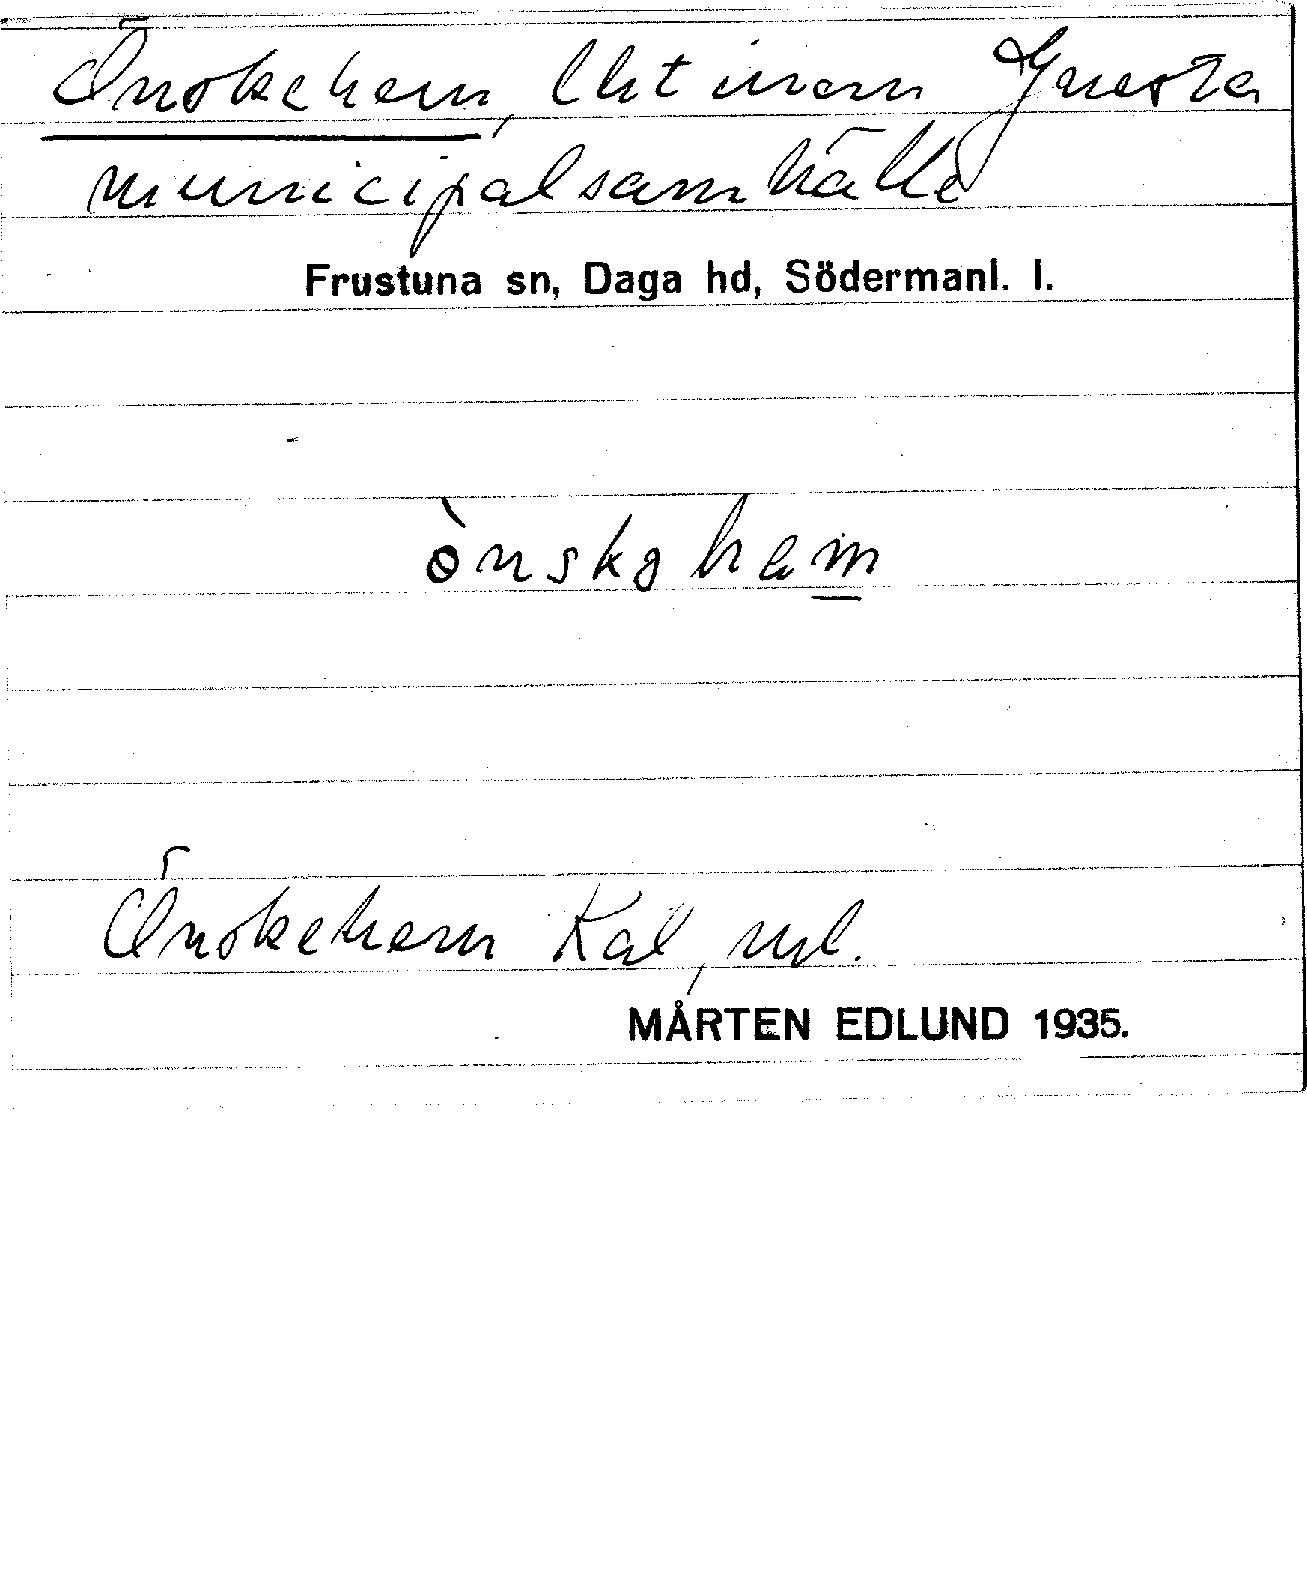 Önskehem, lht inom Gnesta
municipalsamhälle
Frustuna sn, Daga hd, Södermanl. l.
ònskəhem
Önskehem Kal, ul.
MÅRTEN EDLUND 1935.